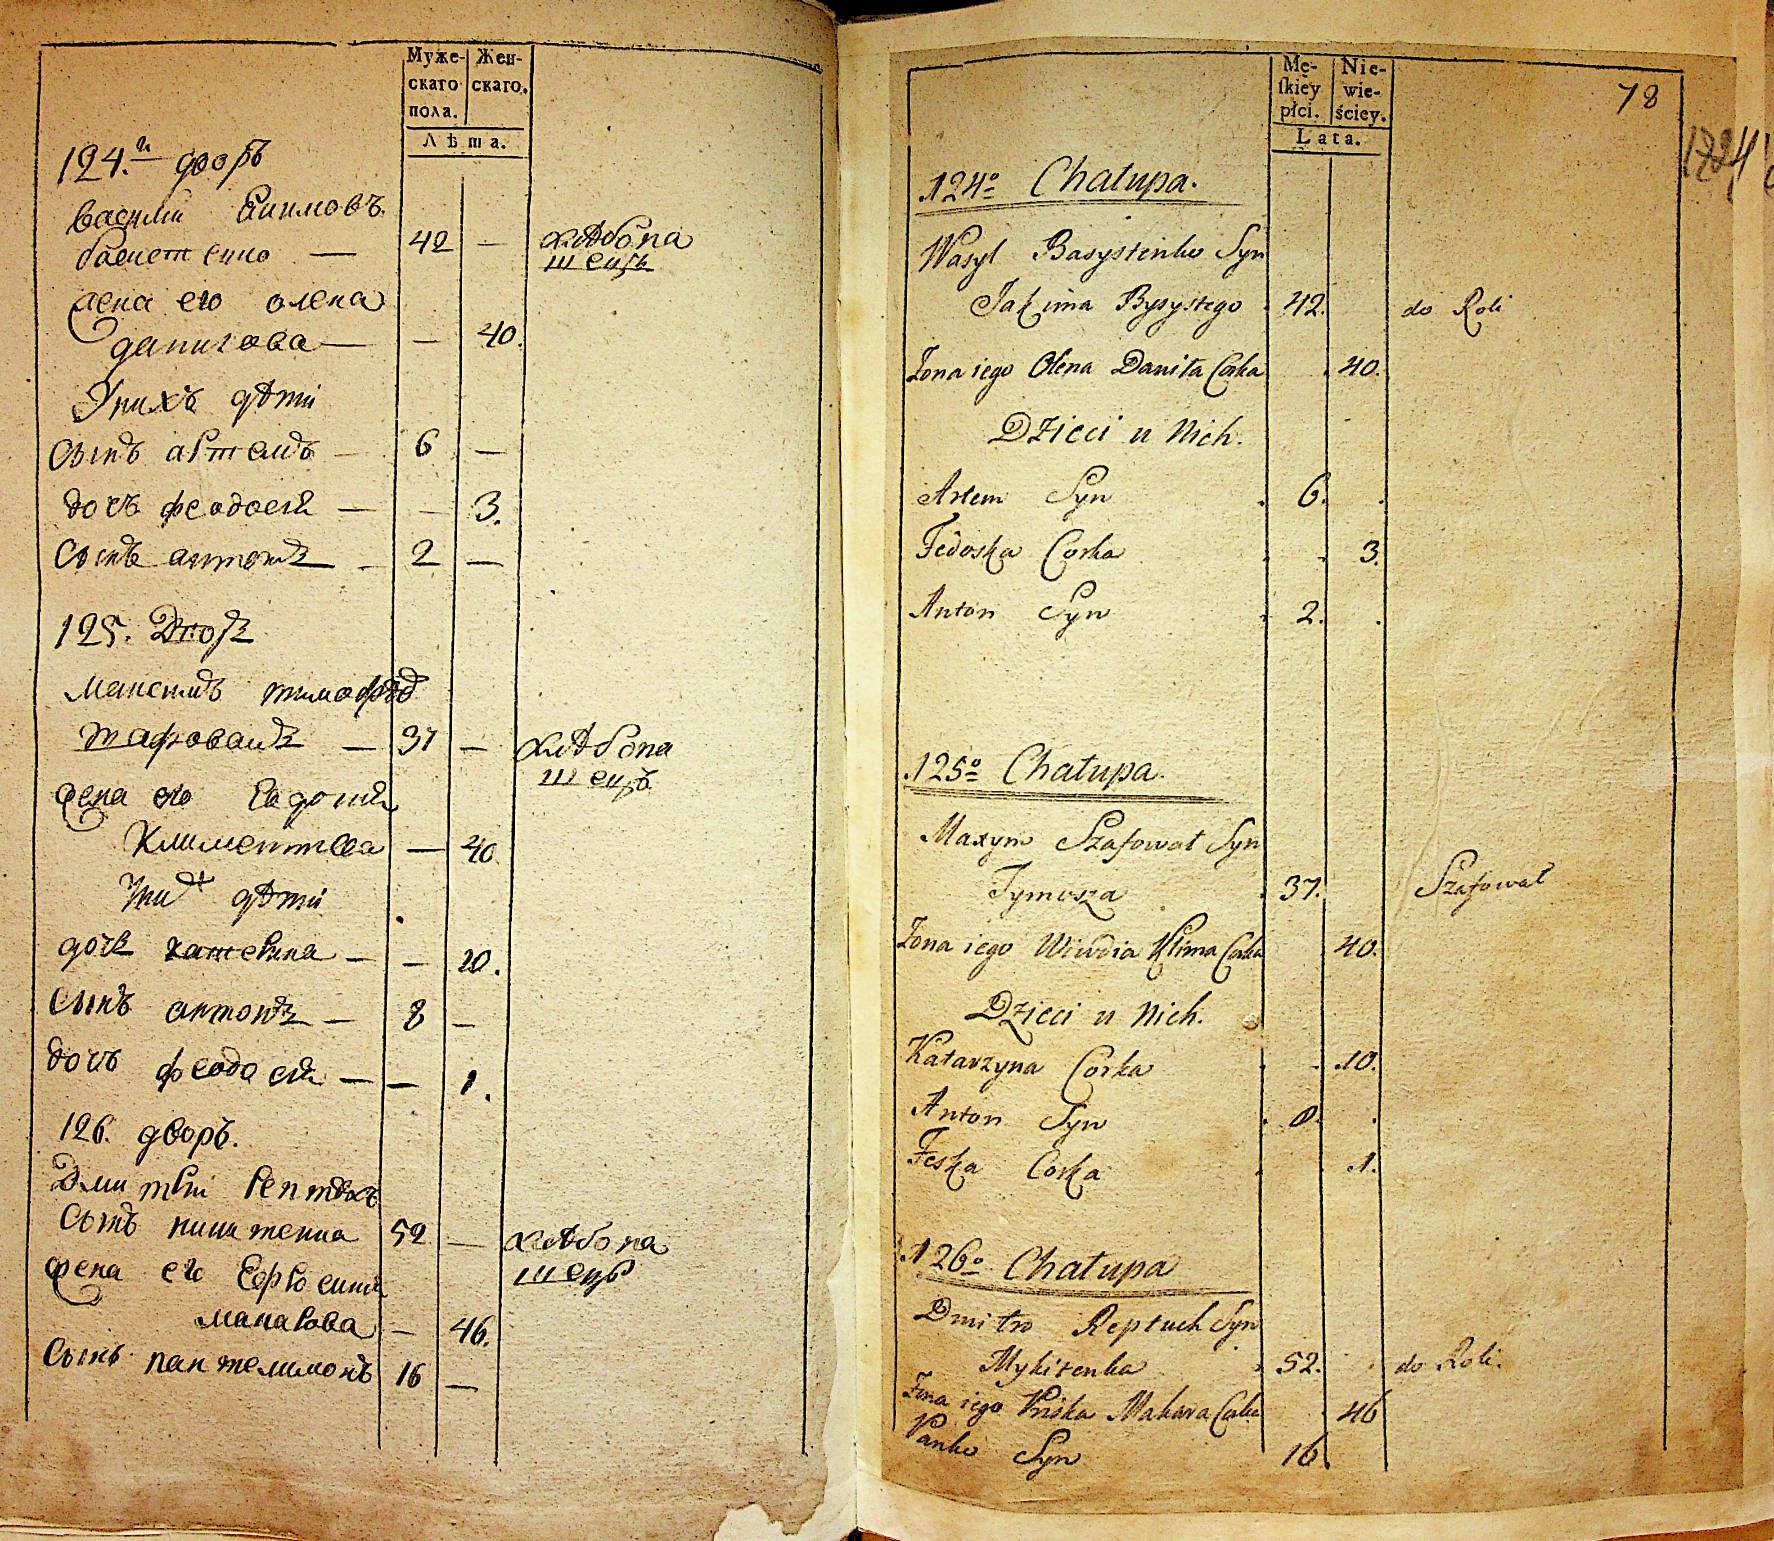 Муже-
скаго
пола.
Жен-
скаго.
Лѣта.
124.й дворъ
василий Екимовъ
басистенко — 42 — хлѣбопа
шецъ
жена его олена
данилова — — 40.
У нихъ дѣти
Сынъ артемъ — 6 —
дочь феодосия — — 3.
Сынъ антонъ — 2 —
125. Дворъ
Максимъ тимофѣев
шафовалъ — 37 — хлѣбопа
шецъ
жена его Евдокия
Климентиева — 40
У них дѣти
дочь катерина — — 10.
Сынъ антонъ — 8 —
дочь феодосия — — 1.
126. дворъ.
Дмитрий Рептухъ
Сынъ никитенка 52 — хлѣбопа
шецъ
жена его Ефросиния
макарова — 46.
Сынъ пантелимонъ 16 —
78
Mę-
ſkiey
płci.
Nie-
wie-
ściey.
Lata.
124o Chałupa.
Wasyl Basystenko Syn
Jakima Bysystego 42. do Roli
Żona iego Olena Daniła Corka 40.
Dzieci u Nich.
Artem Syn 6.
Fedoska Corka 3.
Anton Syn 2.
125o Chałupa.
Maxym Szafował Syn
Tymosza 37. Szafował
Żona iego Wiwdia Klima Corka 40.
Dzieci u Nich.
Katarzyna Corka 10.
Anton Syn 8.
Feska Corka 1.
126o Chałupa
Dmitro Reptuch Syn
Mykitenka 52. do Roli.
Żona iego Priska Makara Corka 46
Panko Syn 16